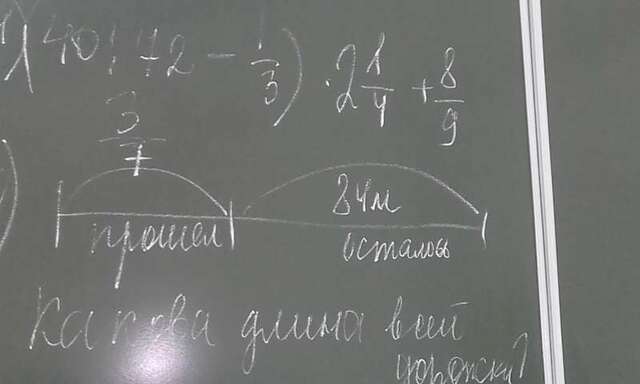 ) 40 : 72 - 1/3) · 2 1/4 + 8/9
3/7
84м
прошел осталось
Какова длина всей
дорожки?